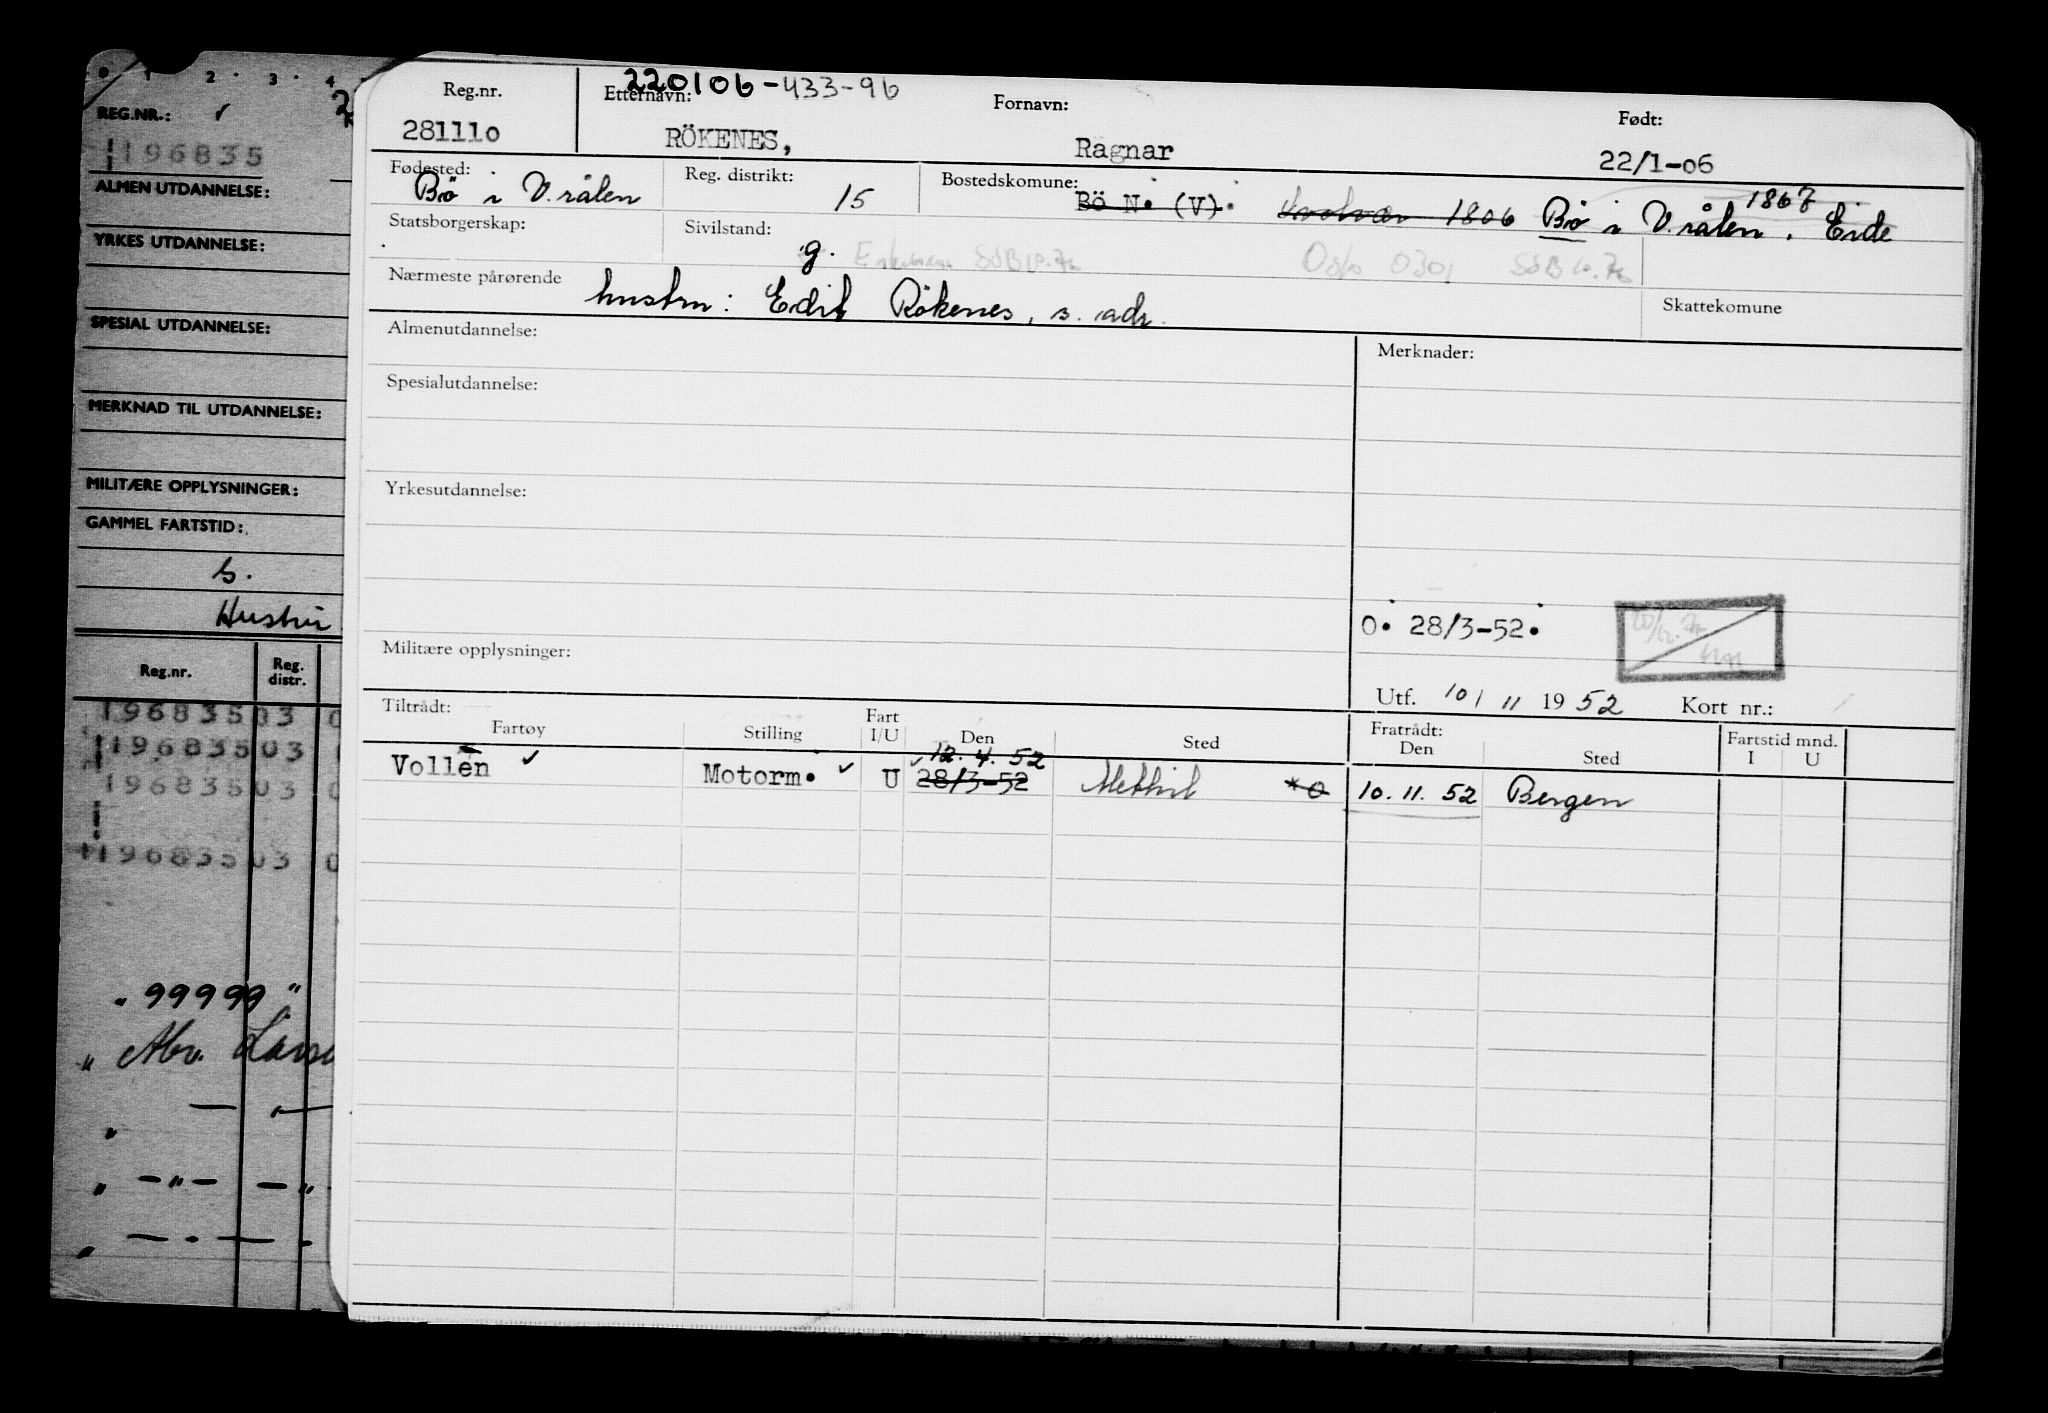 0 1 2 3 4
REG.NR.:
196835
ALMEN UTDANNELSE:
YRKES UTDANNELSE:
SPESIAL UTDANNELSE:
MERKNAD TIL UTDANNELSE:
MILITÆRE OPPLYSNINGER:
GAMMEL FARTSTID:
s.
Hustru
Reg.nr. Reg. distr.
196835 03 0
196835 03
196835 03 0
196835 03 0
" 99999 "
" —"— —"
220106-433-96
Reg.nr. Etternavn: Fornavn: Født:
281110 RÖKENES, Ragnar 22/1-06
Fødested: Reg. distrikt: Bostedskomune:
Bö i V.rålen 15 Bö N. (V). 1806 Bö i V.rålen. 1867 Eide
Statsborgerskap: Sivilstand:
g. Enkemann SSB Oslo 0301 SSB
Nærmeste pårørende Skattekomune
hustru: Edit Rökenes, s. adr.
Almenutdannelse: Merknader:
Spesialutdannelse:
Yrkesutdannelse:
O. 28/3-52.
Militære opplysninger:
Utf. 10/11 1952 Kort nr.:
Tiltrådt: Fratrådt: Fartstid mnd.
Fartøy Stilling Fart I/U Den Sted Den Sted I U
12.4.52
Vollen ✓ Motorm. ✓ U 28/3-52 Methil *o 10.11.52 Bergen